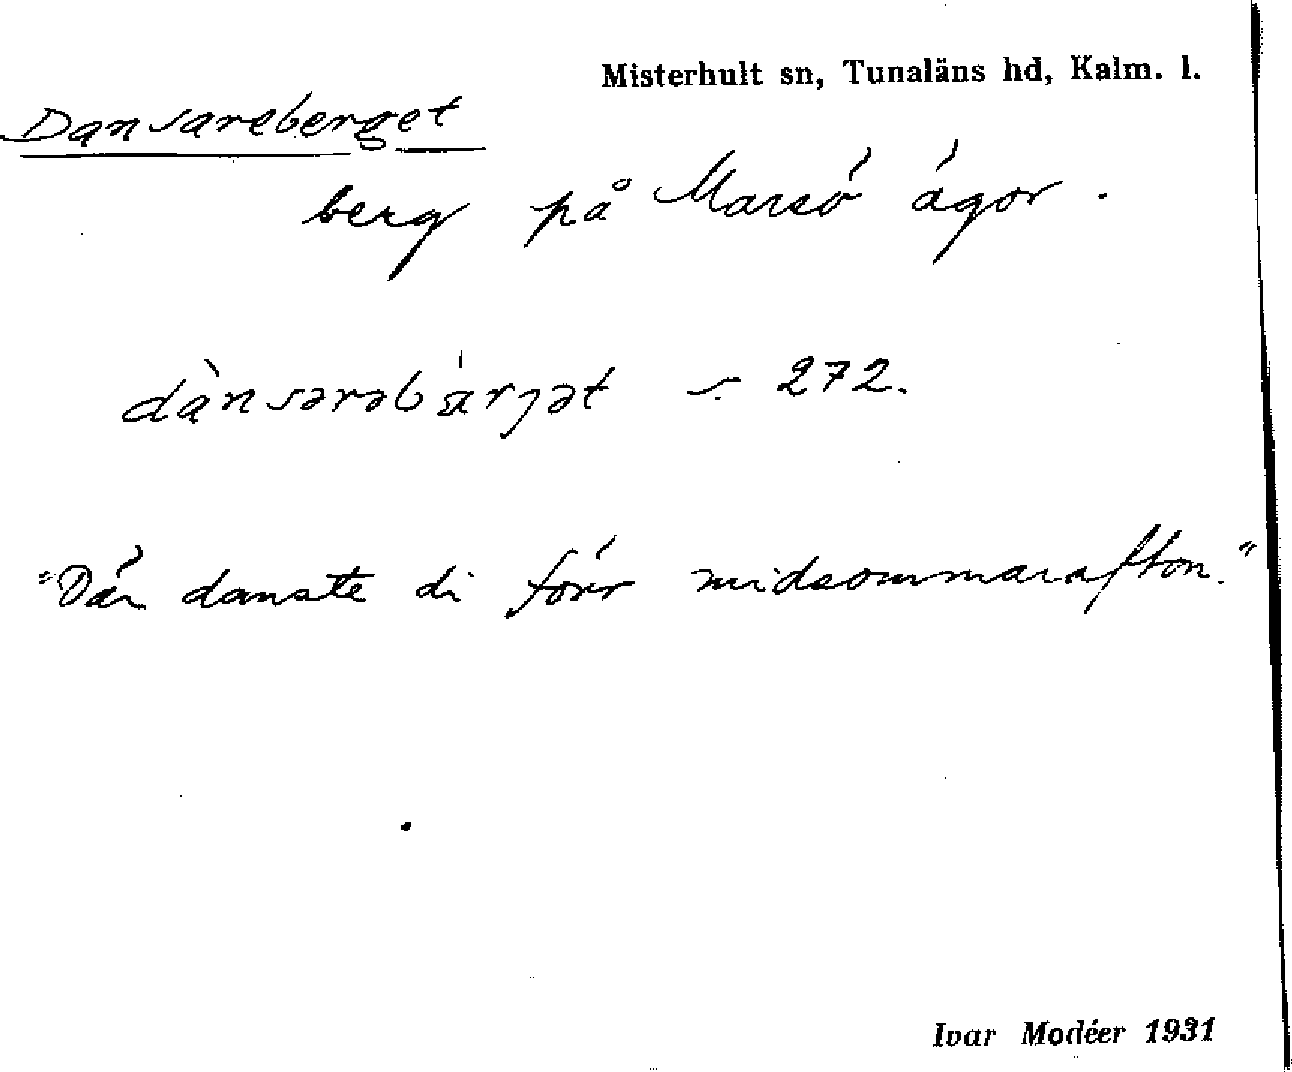 Misterhult sn, Tunaläns hd, Kalm. l.
Dansareberget
berg på Marsö ägor.
dànsərəbä́rjət s. 272.
"Där danste di förr midsommarafton."
Ivar Modéer 1931